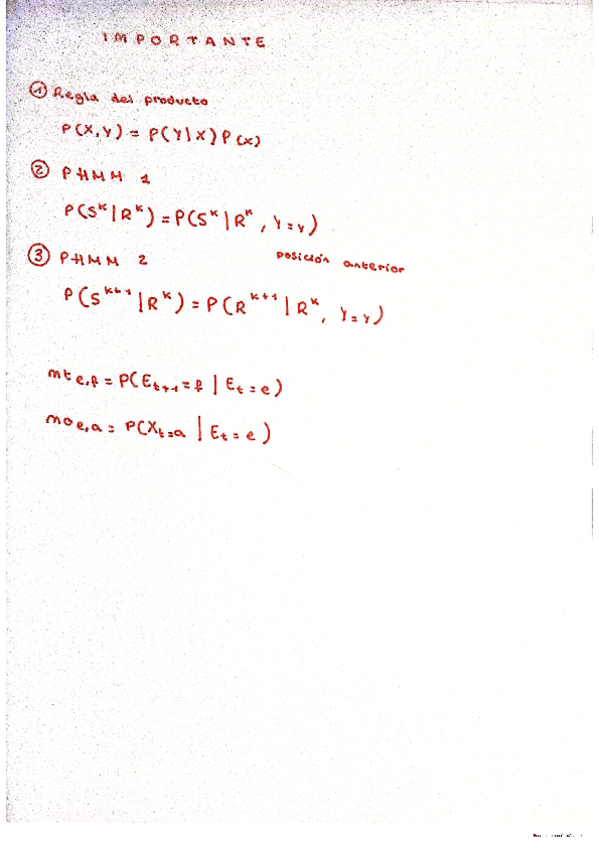 IMPORTANTE
① Regla del producto
P(X,Y) = P(Y|X)P(x)
② PHMM 1
P(Sᴷ|Rᴷ) = P(Sᴷ|Rᴷ, Y=y)
③ PHMM 2
posición anterior
P(Sᴷ⁺¹|Rᴷ) = P(Rᴷ⁺¹|Rᴷ, Y=y)
mt e,f = P(Eₜ₊₁=f | Eₜ=e)
mo e,a = P(Xₜ=a | Eₜ=e)